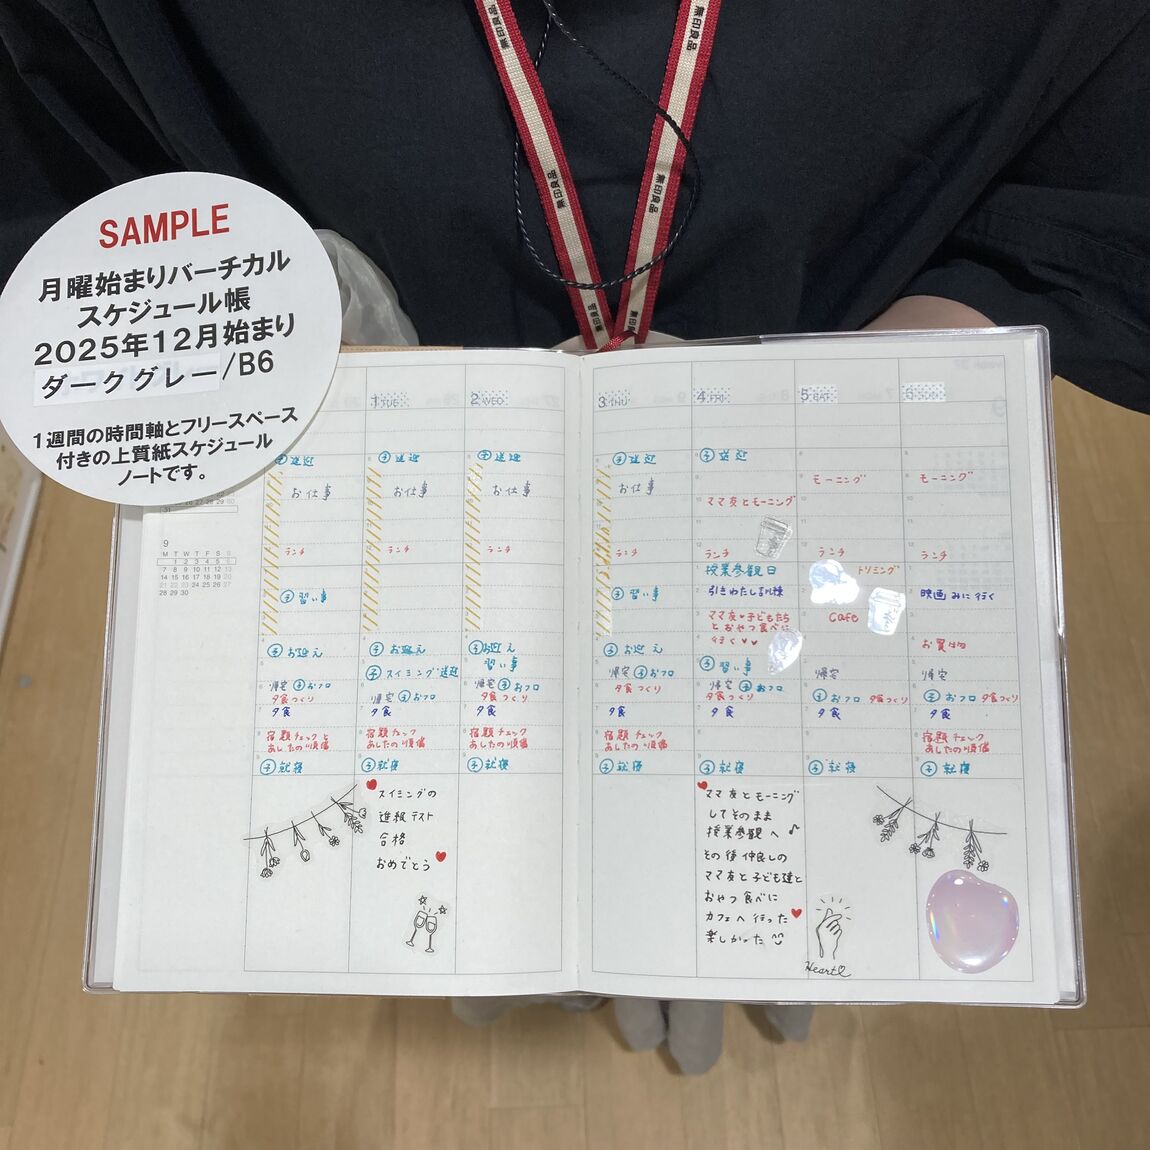 無印良品
無印良品
無印良品
無印良品
無印良品
無印良品
SAMPLE
月曜始まりバーチカル
スケジュール帳
2025年12月始まり
ダークグレー/B6
1週間の時間軸とフリースペース
付きの上質紙スケジュール
ノートです。
31
9
M T W T F S S
1 2 3 4 5 6
7 8 9 10 11 12 13
14 15 16 17 18 19 20
21 22 23 24 25 26 27
28 29 30
子 送迎
お仕事
ランチ
子 習い事
子 お迎え
帰宅 子 おフロ
夕食つくり
夕食
宿題チェックと
あしたの準備
子 就寝
1 TUE
子 送迎
お仕事
ランチ
子 お迎え
子 スイミング送迎
帰宅 子 おフロ
夕食
宿題チェック
あしたの準備
子 就寝
スイミングの
進級テスト
合格
おめでとう
2 WED
子 送迎
お仕事
ランチ
子 お迎え
習い事
帰宅 子 おフロ
夕食つくり
夕食
宿題チェック
あしたの準備
子 就寝
3 THU
子 送迎
お仕事
ランチ
子 習い事
子 お迎え
帰宅 子 おフロ
夕食つくり
夕食
宿題チェック
あしたの準備
子 就寝
4 FRI
子 送迎
ママ友とモーニング
ランチ
授業参観日
引きわたし訓練
ママ友・子どもたち
とおやつ食べに
行く♥♥
子 習い事
帰宅 子 おフロ
夕食つくり
夕食
子 就寝
ママ友とモーニング
してそのまま
授業参観へ♪
その後仲良しの
ママ友と子ども達と
おやつ食べに
カフェへ行った
楽しかった
5 SAT
モーニング
ランチ
トリミング
Cafe
帰宅
子 おフロ 夕食つくり
夕食
子 就寝
Heart
6 SUN
モーニング
ランチ
映画みに行く
お買い物
帰宅
子 おフロ 夕食つくり
夕食
宿題チェック
あしたの準備
子 就寝